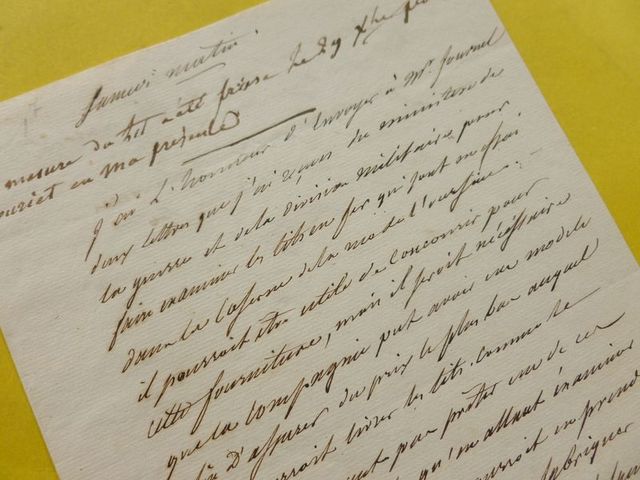 Samedi matin
mesure du lit a été prise le 29 Xbre
en ma présence
J'ai L'honneur d'Envoyer à Mr. Journel
deux lettres que j'ai reçues du ministère de
la guerre et de la division militaire, pour
faire examiner les lits en fer qui sont en essai
dans la Caserne de la rue de l'oursine.
il pourrait être utile de Concourir pour
cette fourniture, mais il serait nécessaire
que la Compagnie put avoir un modèle
D'assurer du prix le plus bas auquel
livrer les lits. comme le
pas prêter un de ces
qu'en allant examiner
pourrait en prend
fabriquer